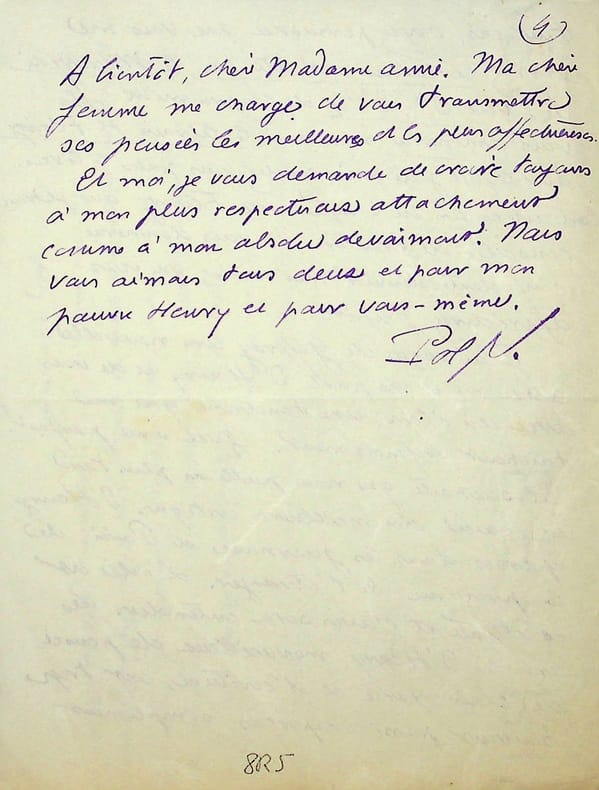 (4)
A bientôt, chère Madame annie. Ma chère
femme me charge de vous transmettre
ses pensées les meilleures et les plus affectueuses.
Et moi, je vous demande de croire toujours
à mon plus respectueux attachement
comme à mon absolu dévouement. Nous
vous aimons tous deux et pour mon
pauvre Henry et pour vous-même.
Pol N.
8R5